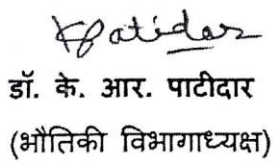 KPatidar
डॉ. के. आर. पाटीदार
(भौतिकी विभागाध्यक्ष)